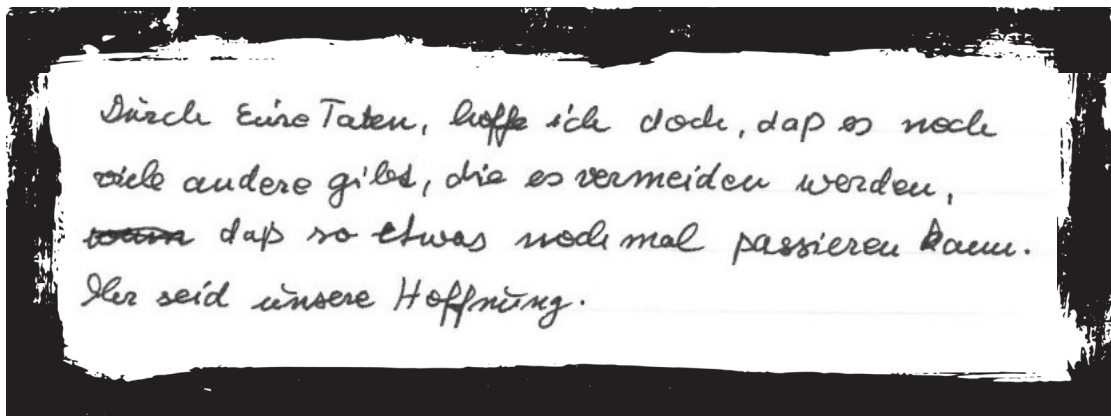 Durch Eure Taten, hoffe ich doch, daß es noch
viele andere gibt, die es vermeiden werden,
daß so etwas noch mal passieren kann.
Ihr seid unsere Hoffnung.